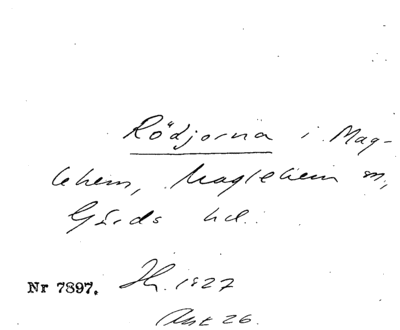 Rödjorna i Mag-
lehem, Maglehem sn,
Gärds hd.
Nr 7897. Jh. 1827
Akt 26.